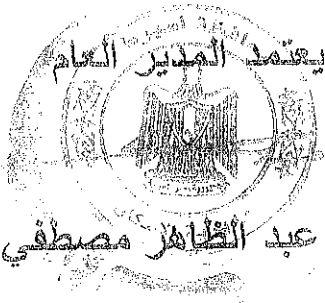 يعتمد المدير العام
عبد الظاهر مصطفي